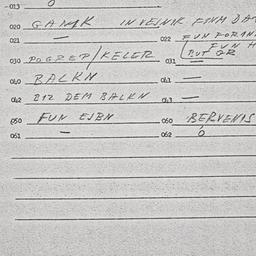 013 0
020 GANIK IN VEINIK FIUM DA
021 — 022 FUN FORAN
FUN H
030 POGREP/KELER 031 BUT GR
040 BALKN 041 —
042 BIZ DEM BALKN 043 —
050 FUN EJBN 060 BERVENIS
061 — 062 0